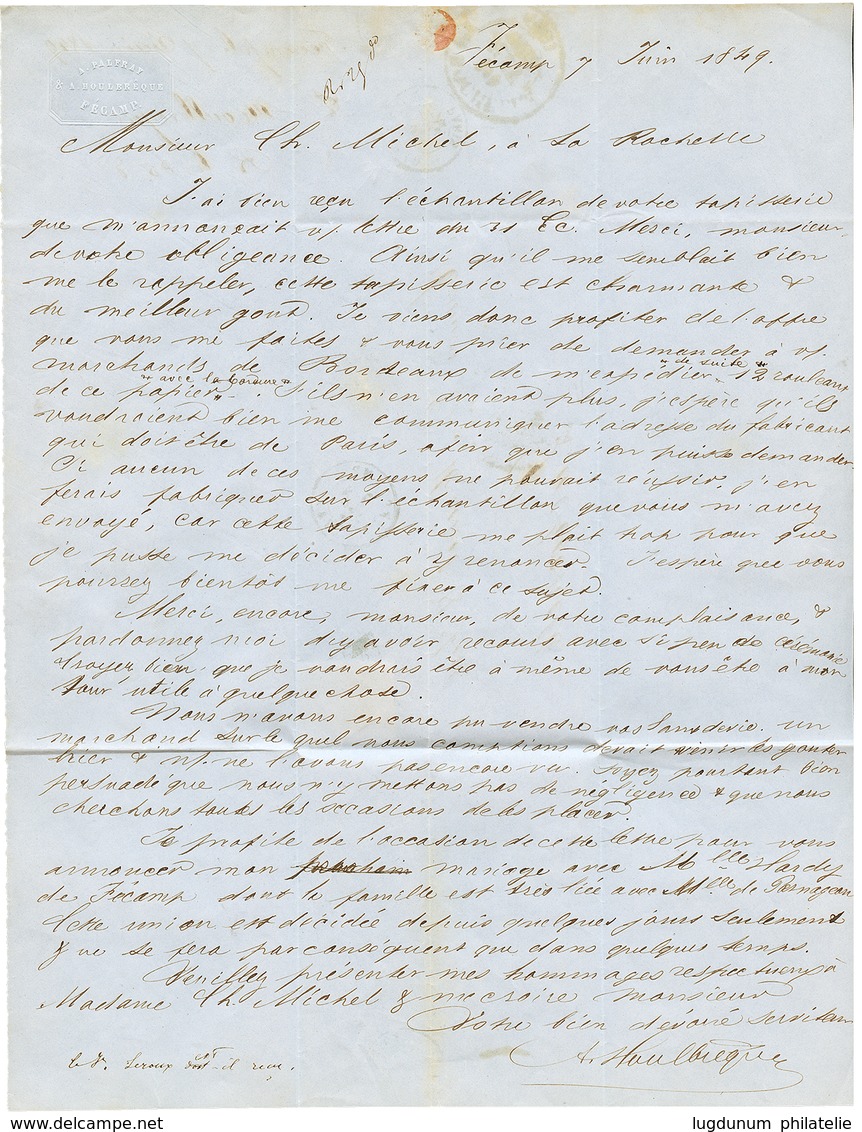 A. PALFRAY
& A. HOULBREQUE
FÉCAMP.
Fécamp 7 Juin 1849.
Monsieur Ch. Michel, à La Rochelle
J'ai bien reçu l'échantillon de votre tapisserie
que m'annonçait v/ lettre du 31 Ec. Merci, monsieur,
de votre obligeance. Ainsi qu'il me semblait bien
me le rappeler, cette tapisserie est charmante &
du meilleur gout. Je viens donc profiter de l'offre
que vous me faites & vous prier de demander à v/.
marchands de Bordeaux de m'expédier " de suite " 12 rouleaux
de ce papier " avec la bordure ". S'ils n'en avaient plus, j'espère qu'ils
voudraient bien me communiquer l'adresse du fabricant
qui doit être de Paris, afin que j'en puisse demander.
Si aucun de ces moyens ne pouvait réussir, j'en
ferais fabriquer sur l'échantillon que vous m'avez
envoyé, car cette tapisserie me plait trop pour que
je pusse me décider à y renoncer. J'espère que vous
pourrez bientôt me fixer à ce sujet.
Merci, encore, monsieur, de votre complaisance, &
pardonnez moi d'y avoir recours avec si peu de cérémonie
Croyez bien que je voudrais être à même de vous être à mon
tour utile à quelque chose.
Nous n'avons encore pu vendre vos eaux de vie. un
marchand sur le quel nous comptions devait venir les gouter
hier & n/. ne l'avons pas encore vu. Soyez pourtant bien
persuadé que nous n'y mettons pas de négligence & que nous
cherchons toutes les occasions de les placer.
Je profite de l'occasion de cette lettre pour vous
annoncer mon prochain mariage avec Mlle Hardy
de Fécamp dont la famille est très liée avec Mlle de
Cette union est décidée depuis quelques jours seulement
& ne se fera par conséquent que dans quelque temps.
Veuillez présenter mes hommages respectueux à
Madame Ch. Michel & me croire monsieur
Votre bien dévoué serviteur
A. Houlbreque
Leroux est-il reçu.
lugdunum philatelie